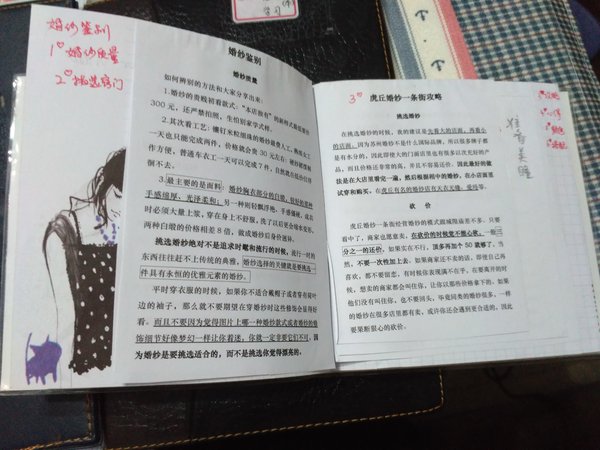 婚纱鉴别
1 婚纱质量
2 挑选窍门
婚纱鉴别
婚纱质量
如何辨别的方法和大家分享出来：
1.婚纱的贵贱初看款式：“本店独有”的新样式最低要价
300 元，还严禁拍照，生怕别家学式样。
2.其次看工艺：镶钉米粒细珠的婚纱最费人工，熟练女工
一天也只能完成两件，价格就会贵 30 元左右；硬纱裙摆制
作方便，普通车衣工一天可以完成 7 件，自然就在低价位徘
徊不去。
3.最主要的是面料：婚纱胸衣部分的白缎，较好的那种
手感绵厚、光泽柔和；另一种则轻飘浮艳、手感僵硬，成衣
时必须大量上浆，穿在身上不舒服，洗了以后更会缩水变形，
两种白缎的价格相差 8 倍，做成婚纱后身价迥异。
挑选婚纱绝对不是追求时髦和流行的时候，流行一时的
东西往往赶不上传统的典雅，婚纱选择的关键就是要挑选一
件具有永恒的优雅元素的婚纱。
平时穿衣服的时候，如果你不适合戴帽子或者穿有荷叶
边的袖子，那么就不要期望在穿婚纱时这些修饰会显得好
看。而且不要因为觉得图片上哪一种婚纱款式或者婚纱的装
饰细节好像梦幻一样让你着迷，你就一定非要它们不可。因
为婚纱是要挑选适合的，而不是挑选你觉得漂亮的。
学习
3
虎丘婚纱一条街攻略
挑选婚纱
在挑选婚纱的时候，我的建议是先靠大的店面，再靠小
的店面。因为苏州婚纱不是什么国际品牌，所以很多牌子都
是有水分的，因此即使大的门面店里也有很多以次充好的产
品，而且价格还非常的高，并且不容易还价。因此最好的做
法是在大店里看完一遍，然后根据相中的婚纱，在小店面里
试穿和购买。在虎丘有名的婚纱店有天衣无缝、爱得等。
砍 价
虎丘婚纱一条街经营婚纱的模式跟城隍庙差不多。只要
看中了，商家也愿意卖。在砍价的时候觉不能心软，一般三
分之一的还价，如果实在不行，顶多再加个 50 就够了，当
然，不要一次性加上去。如果商家还不卖的话，即使自己再
喜欢，都不要留恋，有时候你表现满不在乎，在要离开的时
候，想卖的商家都会叫住你，让你以那些价格拿下的。如果
他们没有叫住你，也不要回头，毕竟同类的婚纱很多，一样
的婚纱在很多店里都有卖，或许你还会遇到更合适的，因此
要果断狠心的砍价。